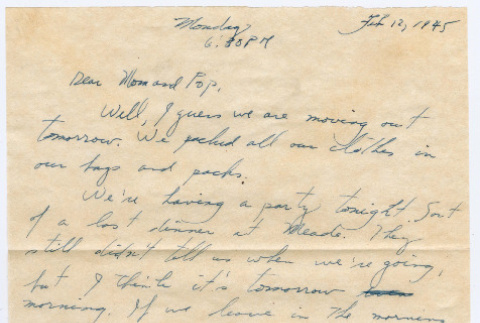 Monday
Feb 12, 1945
6:30 PM
Dear Mom and Pop,
Well, I guess we are moving out
tomorrow. We packed all our clothes in
our bags and packs.
We're having a party tonight. Sort
of a last dinner at Meade. They
still didn't tell us when we're going,
but I think it's tomorrow
morning. If we leave in the morning